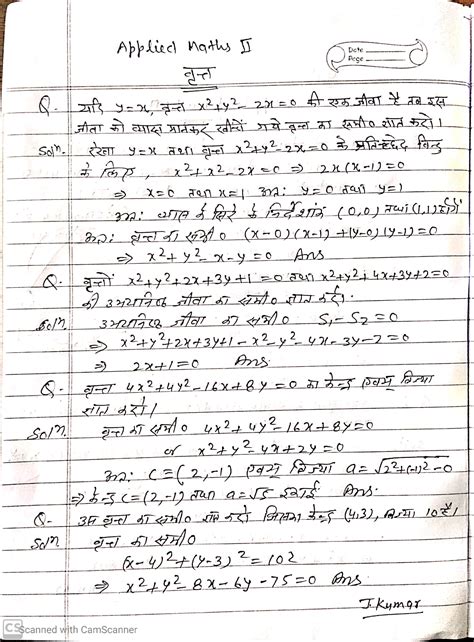 Applied Maths II
Date
Page
वृत्त
Q. यदि y=x, वृत्त x²+y²-2x=0 की एक जीवा है तब इस
जीवा को व्यास मानकर खींचे गये वृत्त का समी० ज्ञात करो।
Solⁿ. रेखा y=x तथा वृत्त x²+y²-2x=0 के प्रतिच्छेद बिन्दु
के लिए, x²+x²-2x=0 ⇒ 2x(x-1)=0
⇒ x=0 तथा x=1 अतः y=0 तथा y=1
अतः व्यास के सिरे के निर्देशांक (0,0) तथा (1,1) होंगे
अतः वृत्त का समी० (x-0)(x-1)+(y-0)(y-1)=0
⇒ x²+y²-x-y=0 Ans
Q. वृत्तों x²+y²+2x+3y+1=0 तथा x²+y²+4x+3y+2=0
की उभयनिष्ठ जीवा का समी० ज्ञात करो।
Solⁿ. उभयनिष्ठ जीवा का समी० S₁-S₂=0
⇒ x²+y²+2x+3y+1-x²-y²-4x-3y-2=0
⇒ 2x+1=0 Ans.
Q. वृत्त 4x²+4y²-16x+8y=0 का केन्द्र एवम् त्रिज्या
ज्ञात करो।
Solⁿ. वृत्त का समी० 4x²+4y²-16x+8y=0
or x²+y²-4x+2y=0
अतः C≡(2,-1) एवम् त्रिज्या a=√2²+(-1)²-0
⇒ केन्द्र C=(2,-1) तथा a=√5 इकाई Ans.
Q. उस वृत्त का समी० ज्ञात करो जिसका केन्द्र (4,3), त्रिज्या 10 है।
Solⁿ. वृत्त का समी०
(x-4)²+(y-3)²=10²
⇒ x²+y²-8x-6y-75=0 Ans
J.Kumar
CS Scanned with CamScanner